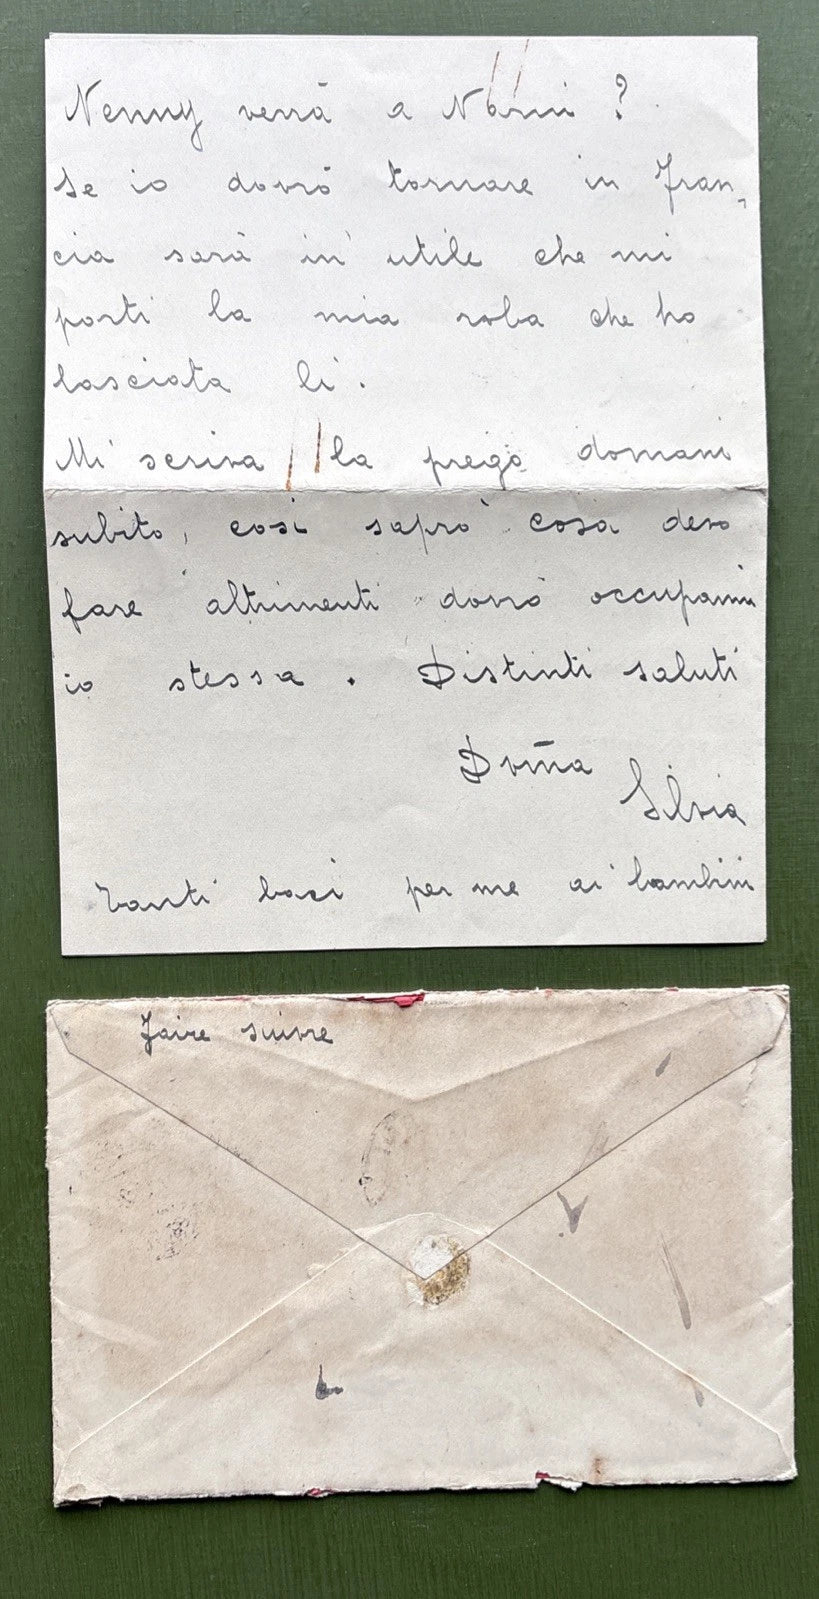 Nenny verrà a Narni ?
Se io dovrò tornare in Fran-
cia sarà in'utile che mi
porti la mia roba che ho
lasciata lì.
Mi scriva la prego domani
subito, così saprò cosa devo
fare altrimenti dovrò occuparmi
io stessa. Distinti saluti
Silvia
Tanti baci per me ai bambini
Faire suivre